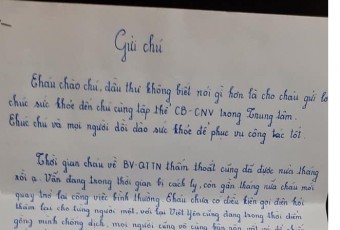 Gửi chú
Cháu chào chú, đầu thư không biết nói gì hơn là cho cháu gửi lời
chúc sức khỏe đến chú cùng tập thể CB-CNV trong Trung tâm.
Chúc chú và mọi người dồi dào sức khỏe để phục vụ công tác tốt.
Thời gian cháu về BV-GTTN thấm thoắt cũng đã được nửa tháng
rồi ạ. Vẫn đang trong thời gian bị cách ly, còn gần tháng nữa cháu mới
quay trở lại công việc bình thường. Cháu chưa có điều kiện gọi điện hỏi
thăm lại chú từng người một, với lại Việt Yên cũng đang trong thời điểm
gồng mình chống dịch, mọi người cũng vô cùng bận rộn